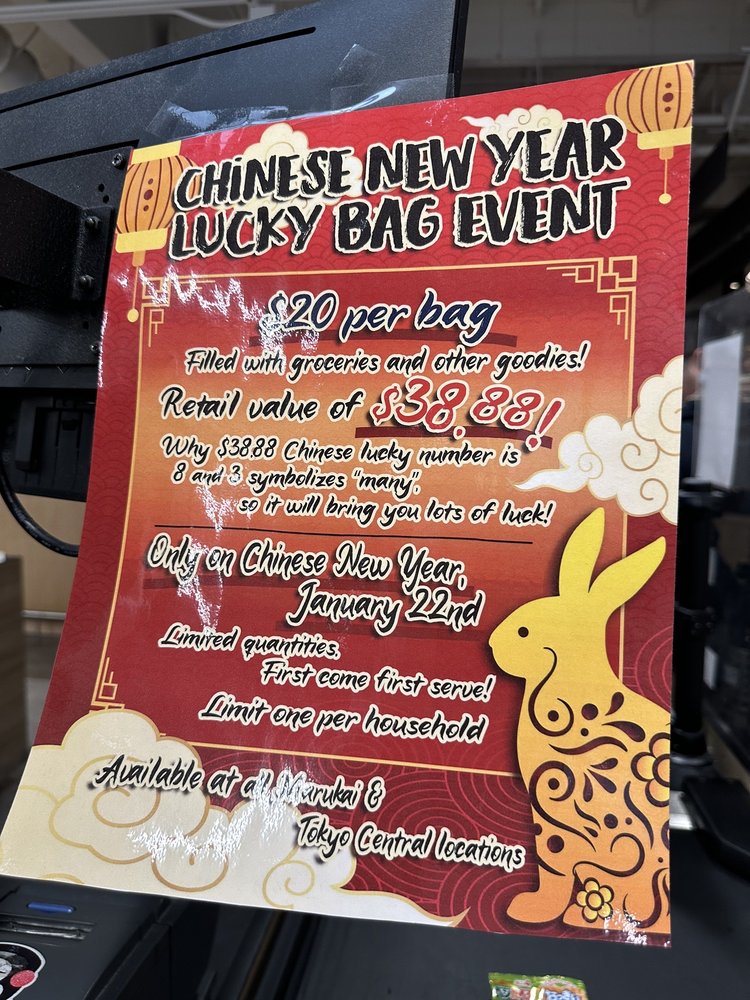 CHINESE NEW YEAR
LUCKY BAG EVENT
$20 per bag
Filled with groceries and other goodies!
Retail value of $38.88!
Why $38.88 Chinese lucky number is
8 and 3 symbolizes "many",
so it will bring you lots of luck!
Only on Chinese New Year,
January 22nd
Limited quantities.
First come first serve!
Limit one per household
Available at all Marukai &
Tokyo Central locations